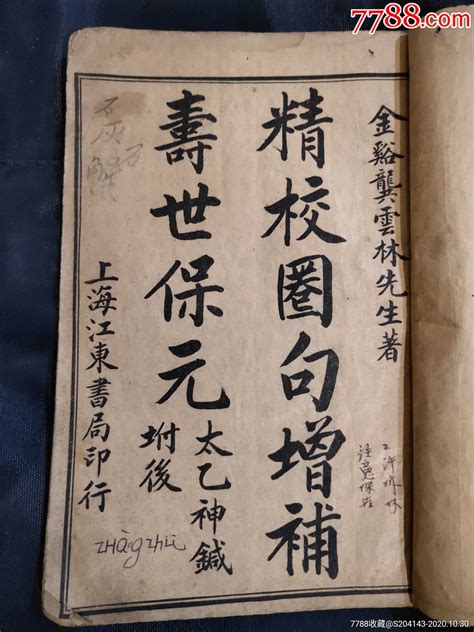 7788.com
金谿龔雲林先生著
精校圈句增補
壽世保元
太乙神鍼
坿後
上海江東書局印行
石灰
石
蟹
zhàng zhù
7788收藏@S204143-2020.10.30